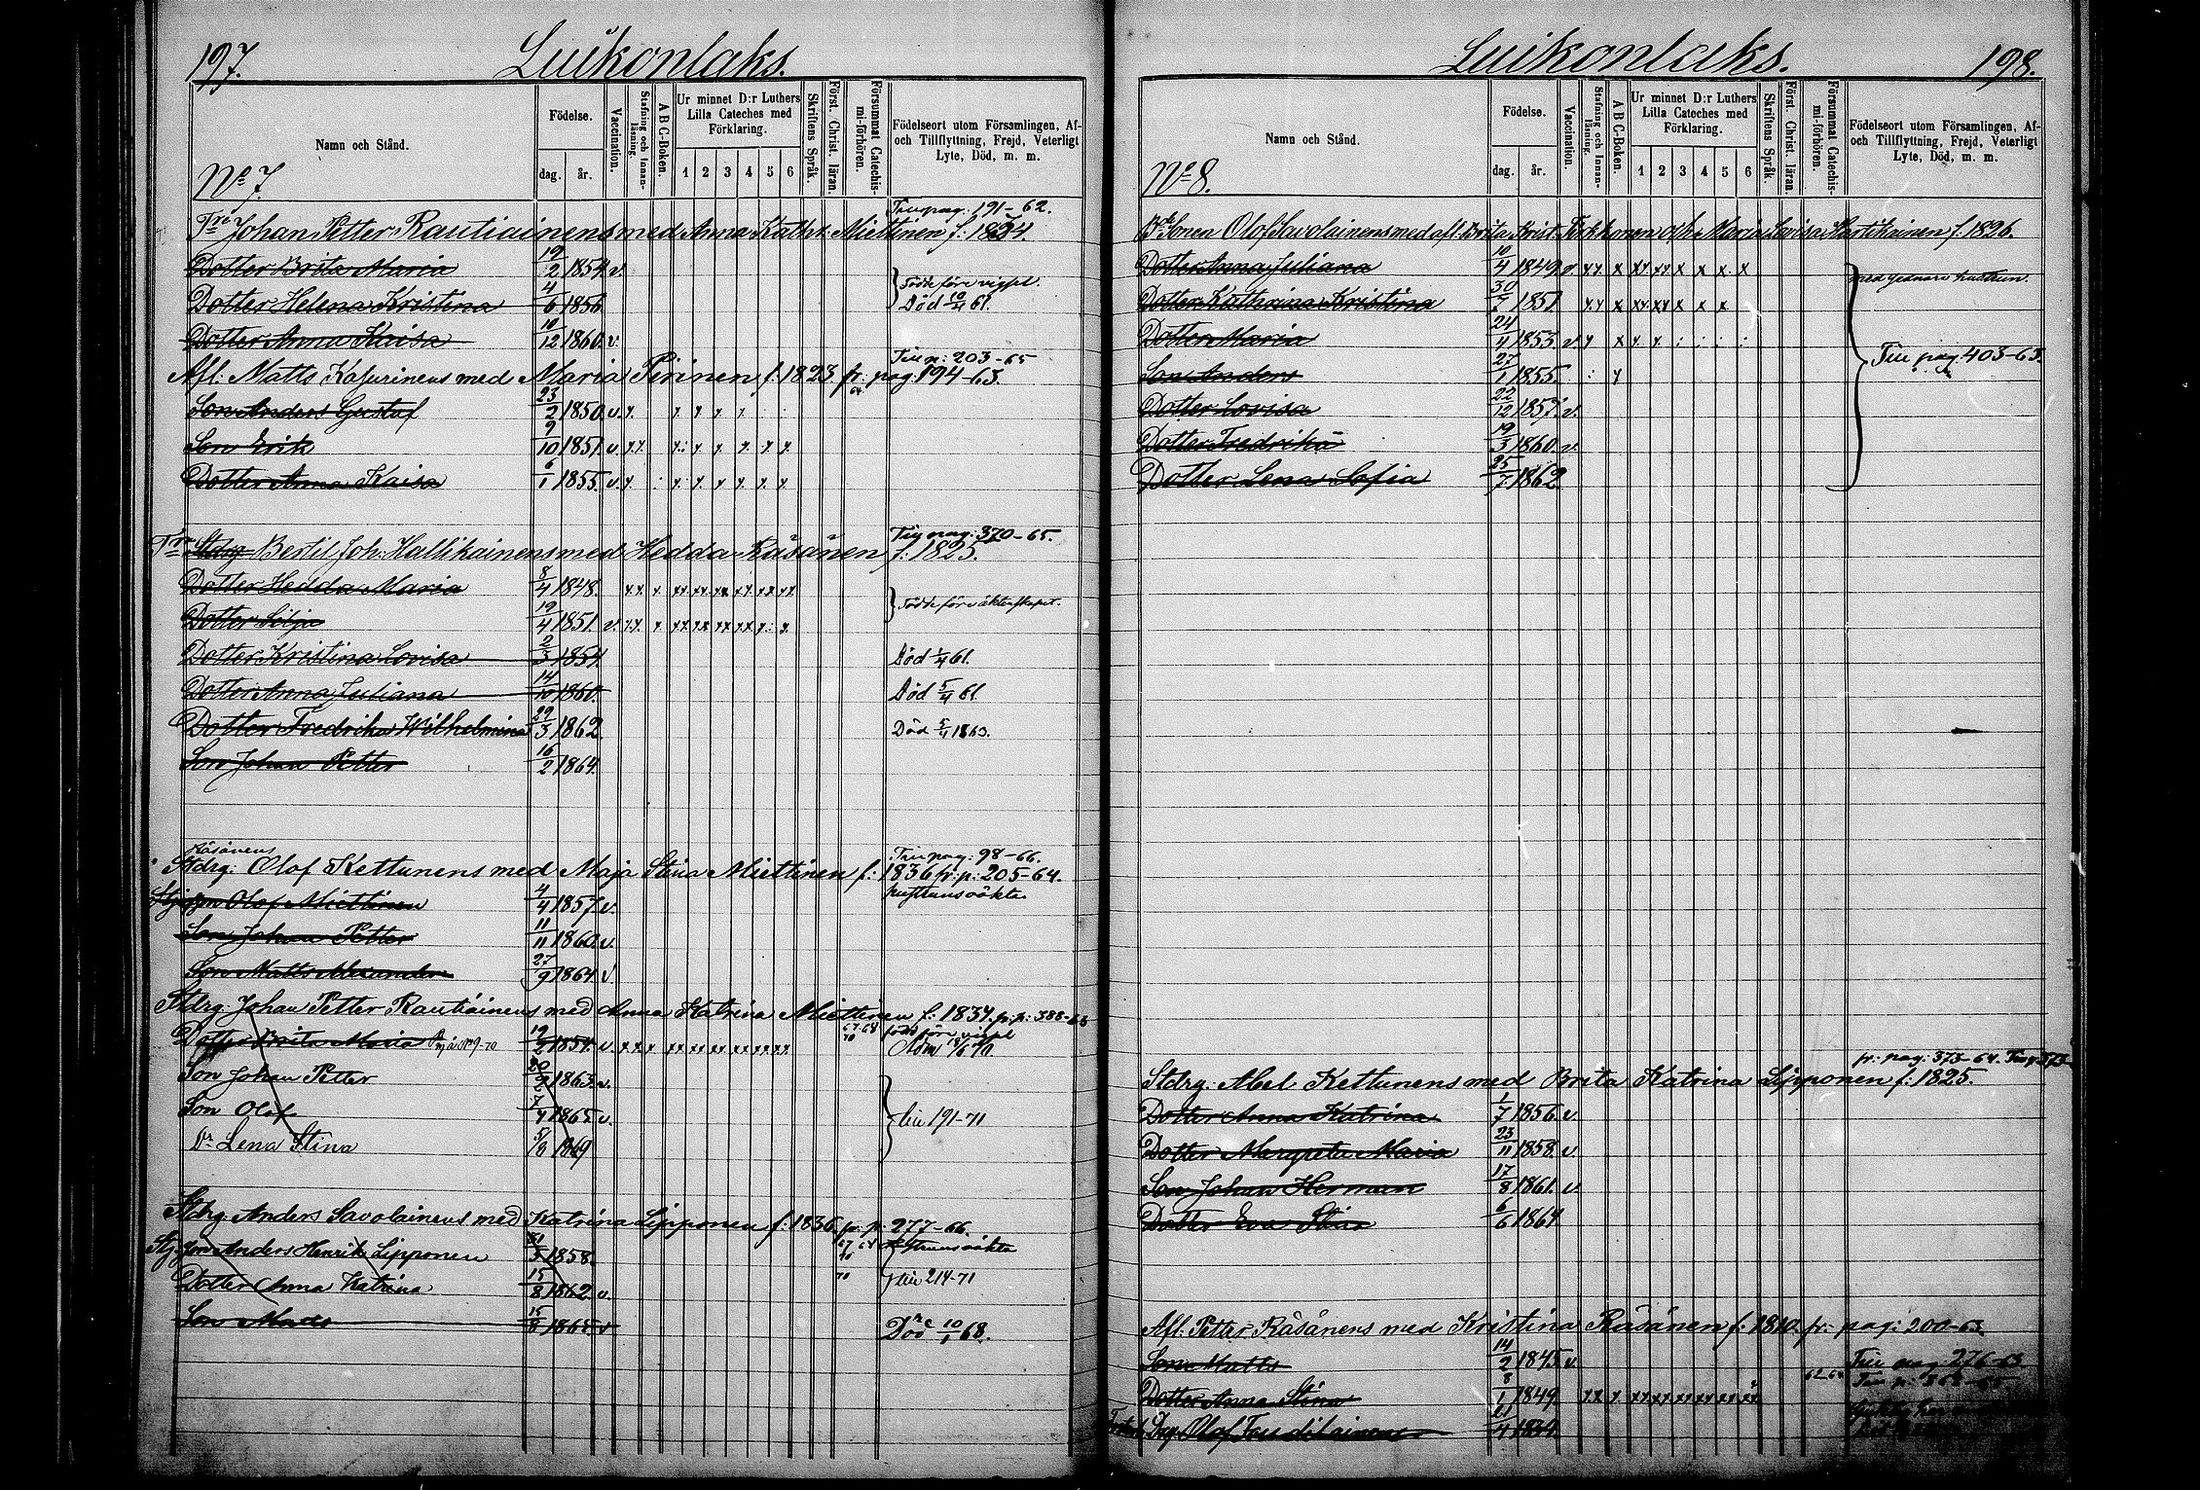 197.
Luikonlaks.
Namn och Stånd.
Födelse.
dag.
år.
Vaccination.
Stafning och Innanläsning.
A B C-Boken.
Ur minnet D:r Luthers Lilla Cateches med Förklaring.
1 2 3 4 5 6
Skriftens Språk.
Först. Christ. läran.
Försummat Catechismi-förhören.
Födelseort utom Församlingen, Af- och Tillflyttning, Frejd, Veterligt Lyte, Död, m. m.
No 7.
Till pag: 191-62.
Johan Petter Rautiainens med Anna Kathr: Miettinen f: 1834.
Dotter Brita Maria 19/2 1854 v.
Dotter Helena Kristina 4/6 1856 Född före vigsel. Död 10/4 61.
Dotter Anna Kaisa 10/12 1860. v.
Till p: 203-65
Afl. Matts Kasurinens med Maria Pirinen f: 1823 fr: pag 194-63.
Son Anders Gustaf 23/2 1850. v.
Son Erik 9/10 1851. v.
Dotter Anna Kaisa 6/1 1855. v.
Till pag: 370-65.
Stdrg Bertil Joh: Hallikainens med Hedda Räsänen f: 1825.
Dotter Hedda Maria 8/4 1848.
Dotter Silja 19/4 1851. v. Född före äktenskapet.
Dotter Kristina Lovisa 2/3 1854 Död 1/4 61.
Dotter Anna Juliana 14/10 1860. Död 5/4 61.
Dotter Fredrika Wilhelmina 22/3 1862. Död 5/4 1863.
Son Johan Petter 16/2 1864.
Räsänens
Till pag: 98-66.
Stdrg: Olof Kettunens med Maja Stina Miettinen f: 1836 fr: p: 205-64.
Stj:son Olof Miettinen 4/4 1857 v. hustruns oäkta
Son Johan Petter 11/11 1860. v.
Son Matts Alexander 27/9 1864 v
Stdrg: Johan Petter Rautiainens med Anna Katrina Miettinen f: 1834. fr: p: 388-63
Dotter Brita Maria 19/2 1854. v. född före vigsel
Son Johan Petter 20/2 1863. v.
Son Olof 7/4 1865 v. till 191-71
Dr Lena Stina 1869
Stdrg Anders Savolainens med Katrina Lipponen f: 1836 fr: p: 277-66.
Stj. son Anders Henrik Lipponen 1858. hustruns oäkta
Dotter Anna Katrina 15/8 1862. v. till 214-71
Son Matts 15/8 1865 v Död 10/1 68.
Luikonlaks.
198.
Namn och Stånd.
Födelse.
dag.
år.
Vaccination.
Stafning och Innanläsning.
A B C-Boken.
Ur minnet D:r Luthers Lilla Cateches med Förklaring.
1 2 3 4 5 6
Skriftens Språk.
Först. Christ. läran.
Försummat Catechismi-förhören.
Födelseort utom Församlingen, Af- och Tillflyttning, Frejd, Veterligt Lyte, Död, m. m.
No 8.
Bdesonen Olof Savolainens med afl. Brita Krist. Pirhonen och Maria Lovisa Martikainen f. 1826.
Dotter Anna Juliana 10/4 1849. v. med förra hustrun.
Dotter Kathrina Kristina 30/7 1851
Dotter Maria 24/4 1853 v. Till pag 403-63.
Son Anders 27/1 1855.
Dotter Lovisa 22/12 1857. v.
Dotter Fredrika 19/3 1860. v.
Dotter Lena Sofia 25/7 1862
fr: pag: 373-64.
Stdrg: Abel Kettunens med Brita Katrina Lipponen f: 1825.
Dotter Anna Katrina 1/7 1856. v.
Dotter Margreta Maria 23/11 1858. v.
Son Johan Herman 17/8 1861. v.
Dotter Eva Stina 6/6 1864
Afl: Petter Räsänens med Kristina Räsänen f: 1810 fr: pag: 200-63.
Son Matts 14/2 1845 v. Till pag 276-63
Dotter Anna Stina 8/1 1849.
Drg. Olof